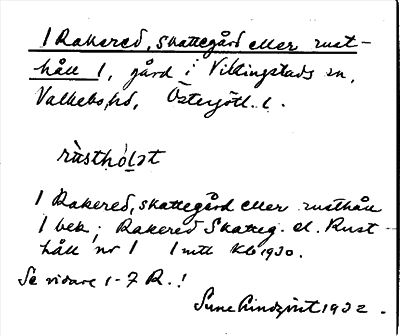 1 Rakered, skattegård eller rust-
håll 1, gård i Vikingstads sn,
Valkebo hd, Östergötl. l.
rùsthó̠l̠ət
1 Rakered, skattegård eller rusthåll
1 bek; Rakered Skatteg. el. Rust-
håll nr 1 1 mtl Kb 1930.
Se vidare 1-7 R.!
Sune Lindqvist 1932.